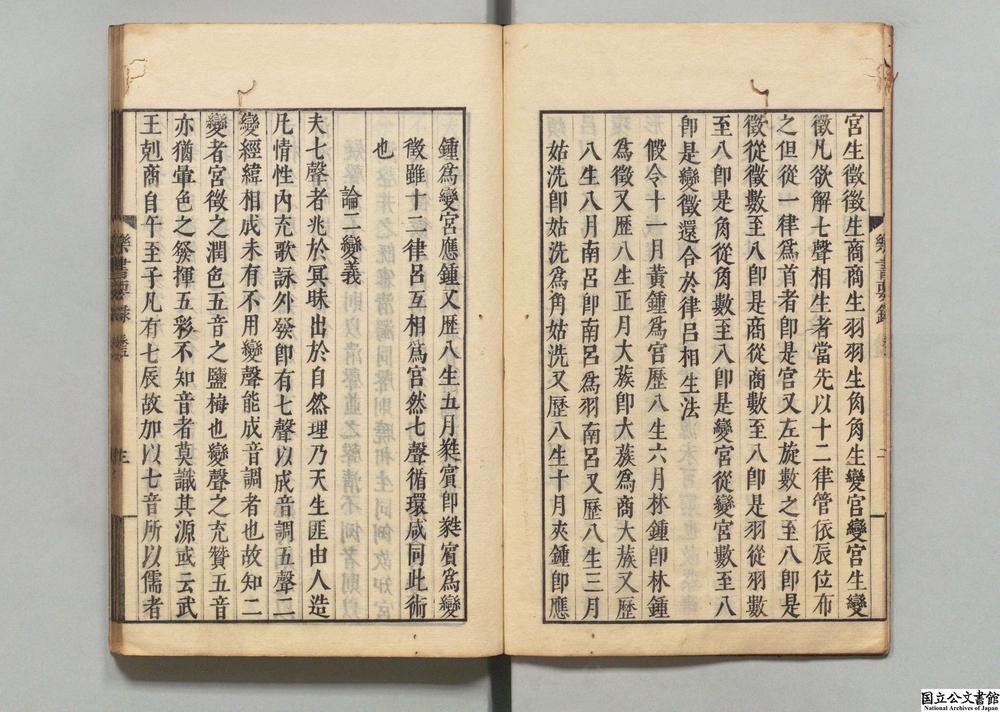 宮生徵徵生商商生羽羽生角角生變宮變宮生變
徵凡欲解七聲相生者當先以十二律管依辰位布
之但從一律爲首者卽是宮又左旋數之至八卽是
徵從徵數至八卽是商從商數至八卽是羽從羽數
至八卽是角從角數至八卽是變宮從變宮數至八
卽是變徵還合於律呂相生法
假令十一月黃鍾爲宮歷八生六月林鍾卽林鍾
爲徵又歷八生正月大蔟卽大蔟爲商大蔟又歷
八生八月南呂卽南呂爲羽南呂又歷八生三月
姑洗卽姑洗爲角姑洗又歷八生十月夾鍾卽應
鍾爲變宮應鍾又歷八生五月蕤賓卽蕤賓爲變
徵雖十二律呂互相爲宮然七聲循環咸同此術
也
論二變義
夫七聲者兆於冥昧出於自然理乃天生匪由人造
凡情性內充歌詠外發卽有七聲以成音調五聲二
變經緯相成未有不用變聲能成音調者也故知二
變者宮徵之潤色五音之鹽梅也變聲之充贊五音
亦猶暈色之發揮五彩不知音者莫識其源或云武
王剋商自午至子凡有七辰故加以七音所以儒者
樂書要錄 卷五
樂書要錄
国立公文書館
National Archives of Japan